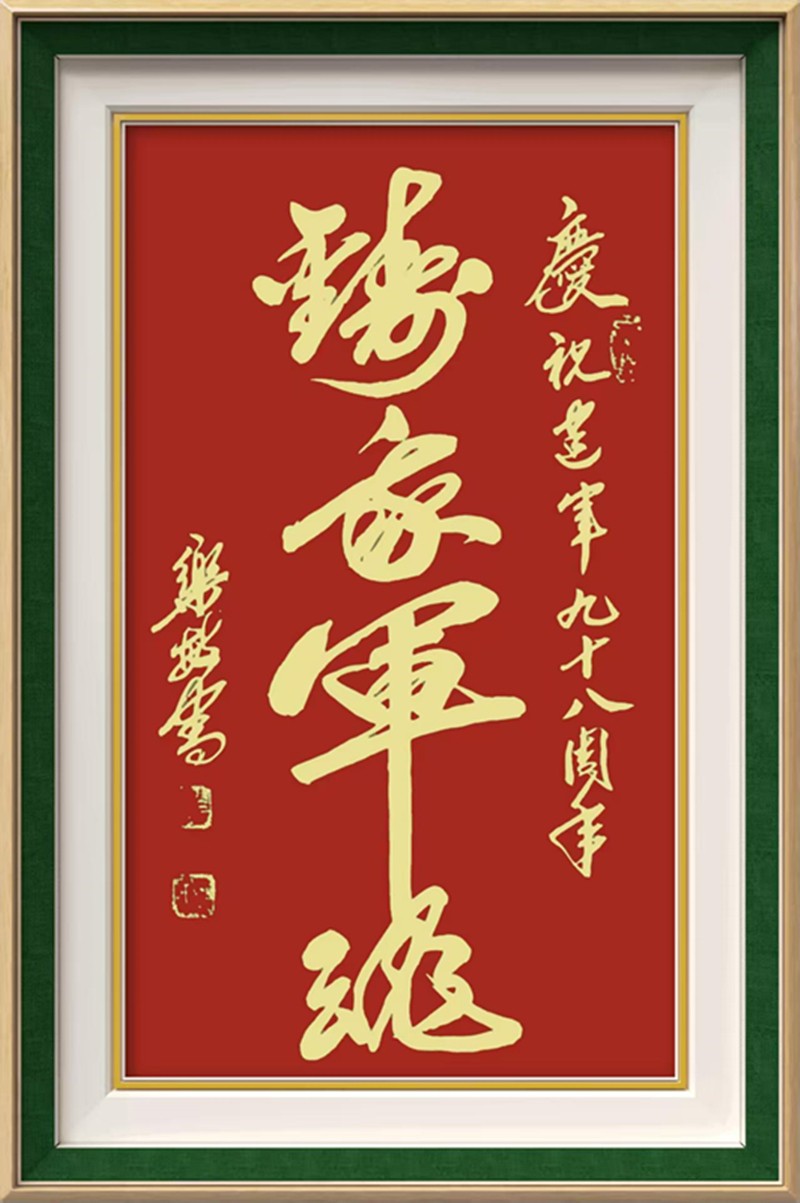 慶祝建軍九十八周年
鑄軍魂
書